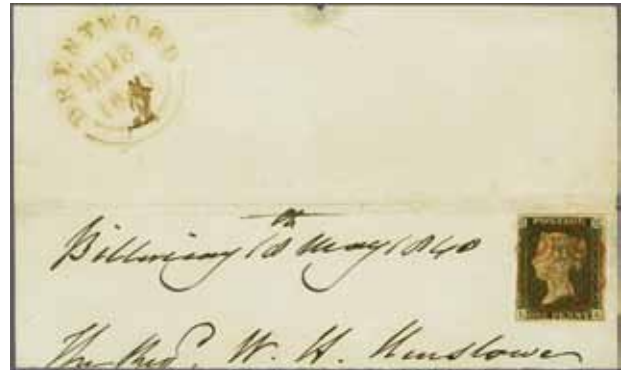 BRENTWOOD
Billericay 18th May 1840
POSTAGE
ONE PENNY
The Revd. W. H. Henslowe